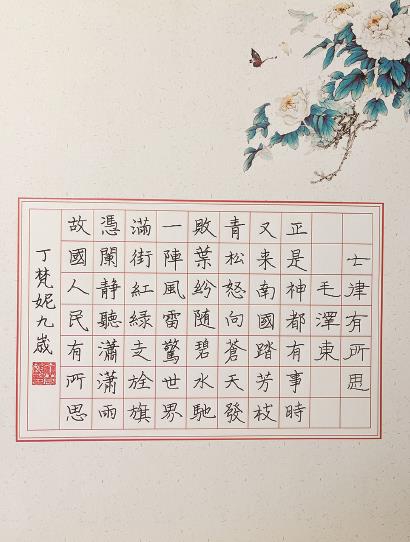 七律有所思
毛澤東
正是神都有事時
又来南國踏芳枝
青松怒向蒼天發
敗葉紛随碧水馳
一陣風雷驚世界
滿街紅緑走旌旗
憑闌静聽瀟瀟雨
故國人民有所思
丁梵妮九歲